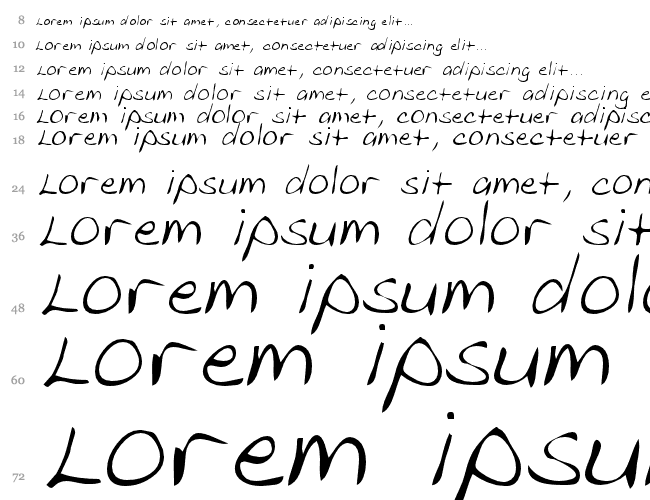 8 Lorem ipsum dolor sit amet, consectetuer adipiscing elit...
10 Lorem ipsum dolor sit amet, consectetuer adipiscing elit...
12 Lorem ipsum dolor sit amet, consectetuer adipiscing elit...
14 Lorem ipsum dolor sit amet, consectetuer adipiscing e
16 Lorem ipsum dolor sit amet, consectetuer adipisc
18 Lorem ipsum dolor sit amet, consectetuer
24 Lorem ipsum dolor sit amet, con
36 Lorem ipsum dolor sit
48 Lorem ipsum dol
60 Lorem ipsum
72 Lorem ipsu